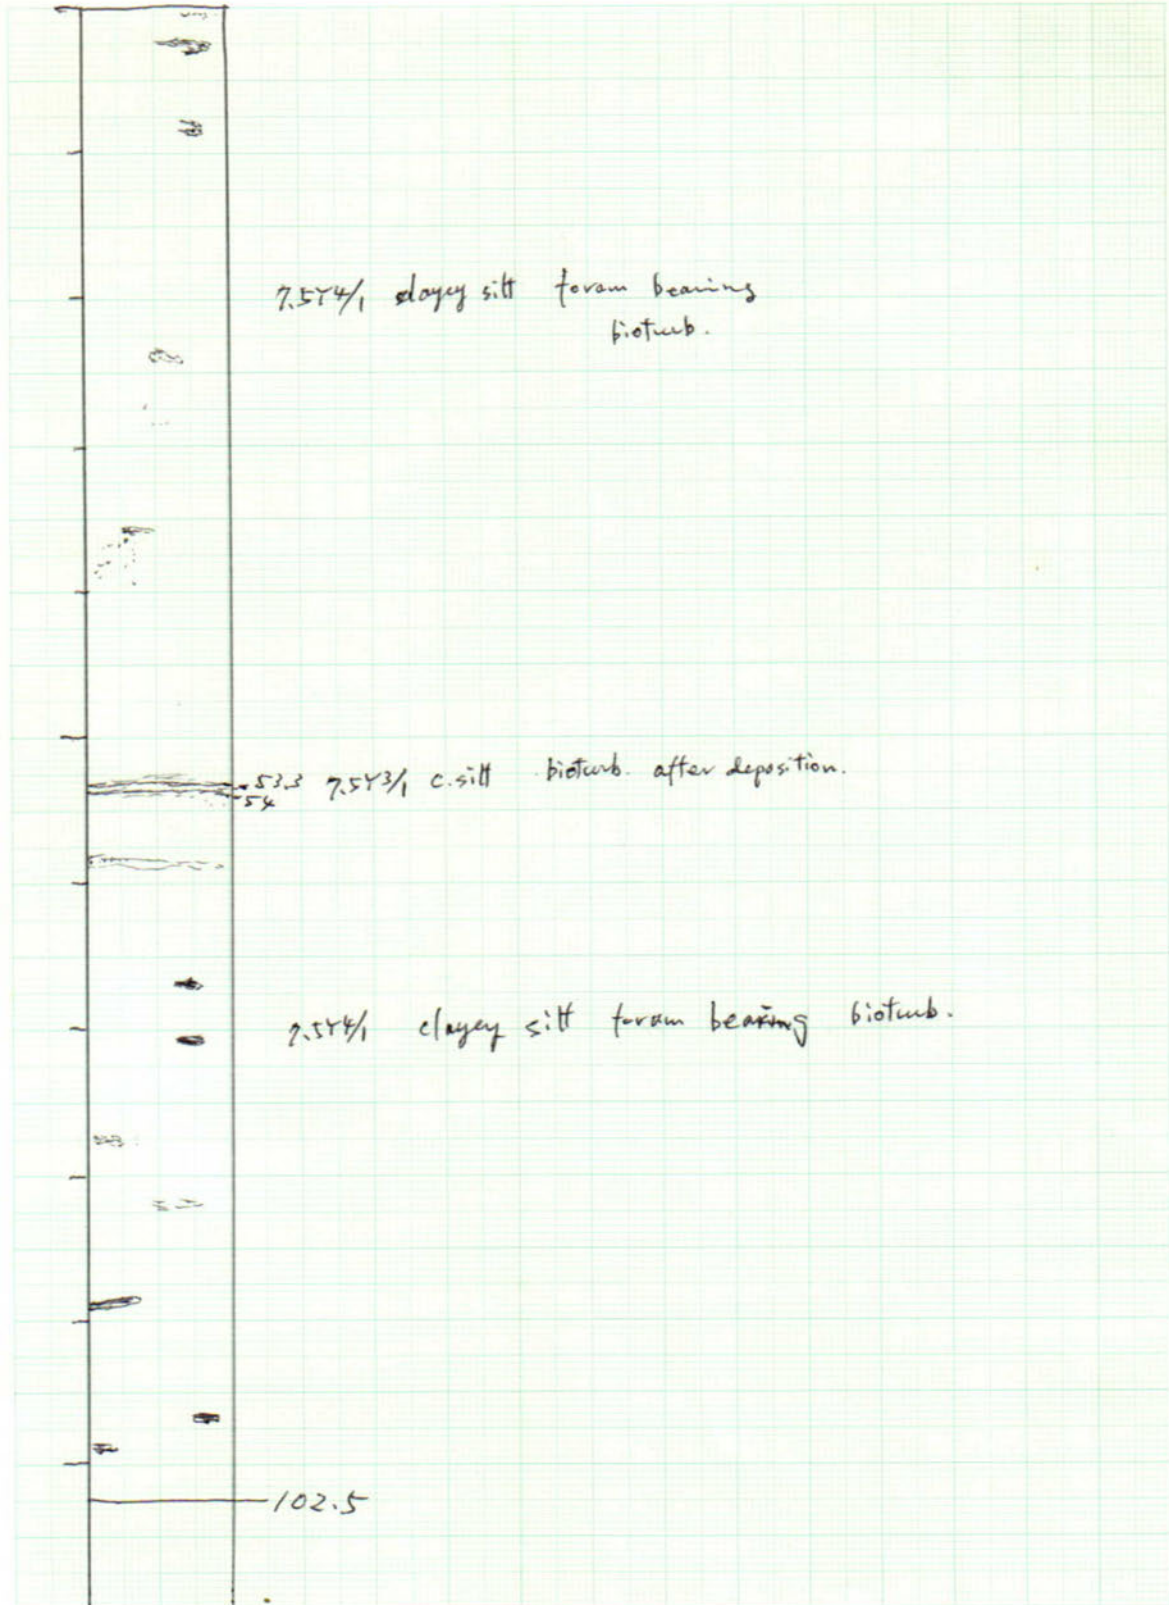 7.5Y4/1 clayey silt foram bearing
bioturb.
53.3 7.5Y3/1 c.silt bioturb. after deposition.
54
7.5Y4/1 clayey silt foram bearing bioturb.
102.5